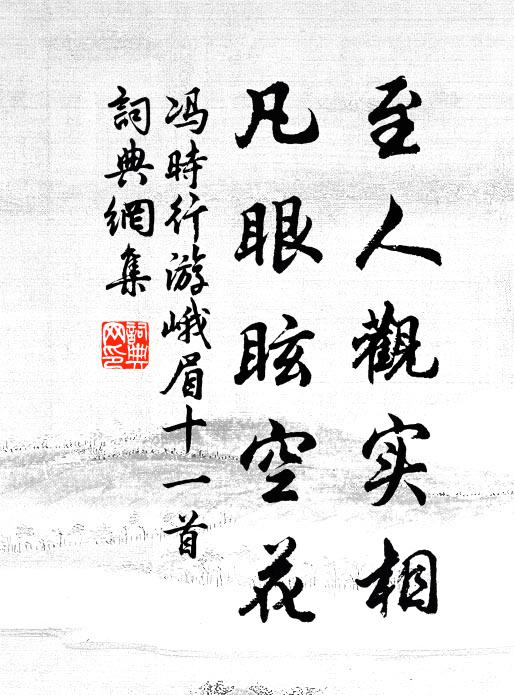 至人觀实相
凡眼眩空花
冯時行游峨眉十一首
詞典網集
詞典
网印